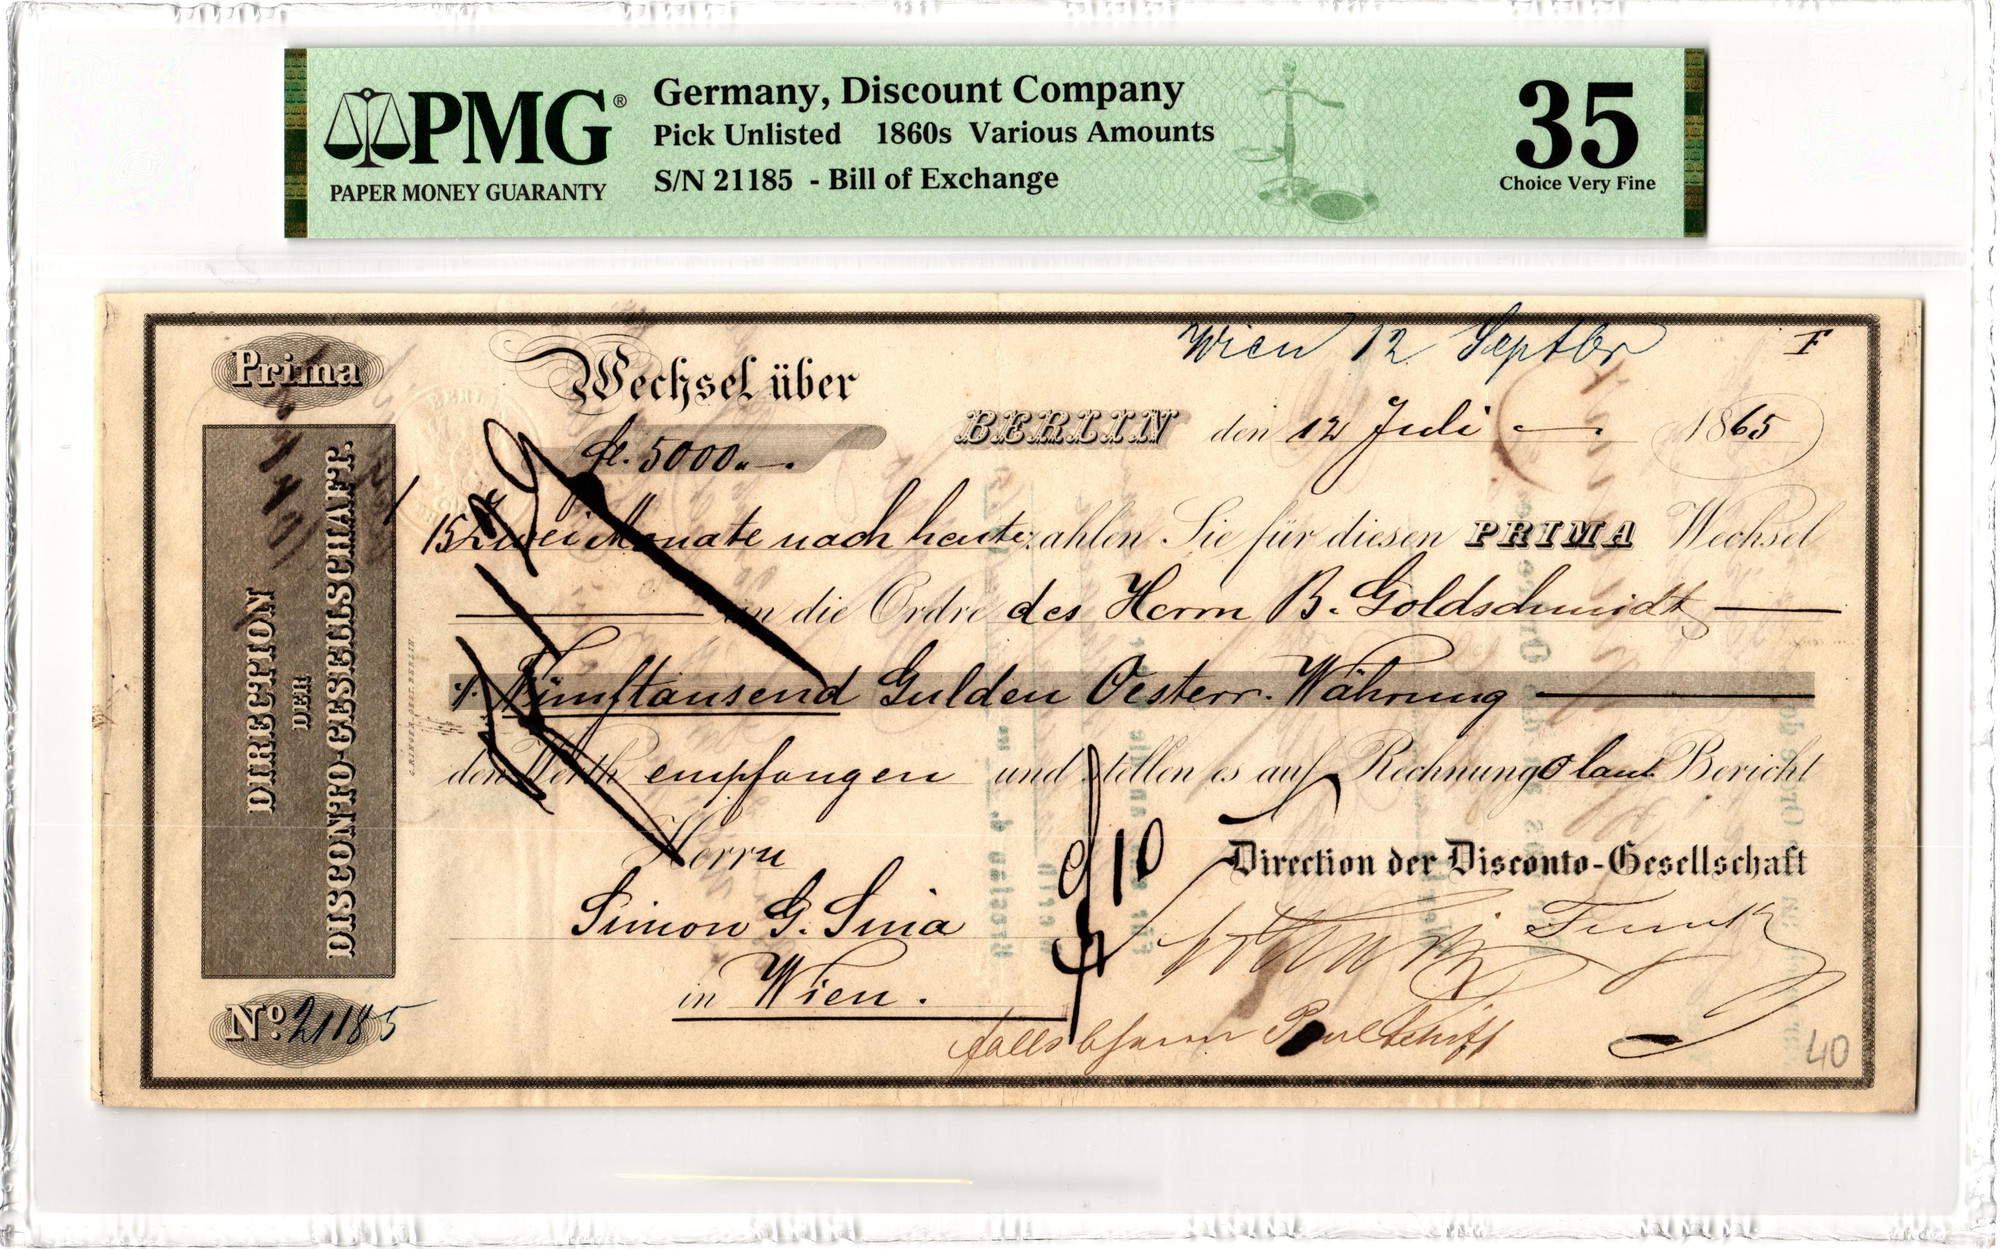 PMG®
PAPER MONEY GUARANTY
Germany, Discount Company
Pick Unlisted 1860s Various Amounts
S/N 21185 - Bill of Exchange
35
Choice Very Fine
Wien 12 Septbr
Prima
Wechsel über
fl. 5000.
BERLIN den 12 Juli 1865
BERLIN
DIRECTION
DER
DISCONTO-GESELLSCHAFT.
Zwei Monate nach heute zahlen Sie für diesen PRIMA Wechsel
an die Ordre des Herrn B. Goldschmidt
Fünftausend Gulden Oesterr. Währung
den Werth empfangen und stellen es auf Rechnung laut Bericht
Herrn
Simon G. Sina
in Wien.
10
Direction der Disconto-Gesellschaft
falls
No. 21185
40